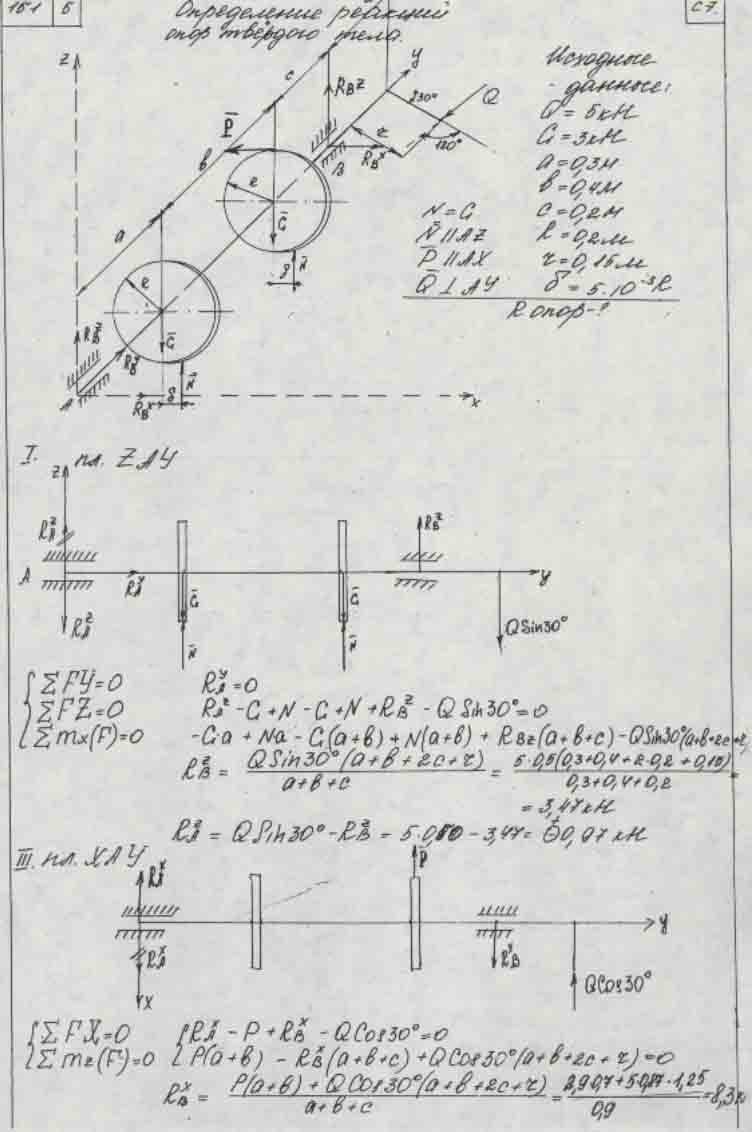 151 6
Определение реакций
опор твёрдого тела.
С7.
Исходные
данные:
Q = 5кН
G = 3кН
a = 0,3м
b = 0,4м
N = G c = 0,2м
N̄ ∥ AZ R = 0,2м
P̄ ∥ AX r = 0,15м
Q̄ ⊥ AY δ = 5·10⁻³R
R опор-?
z
c
y
R_B z
30°
Q
P̄
b
r
120°
B
R_B^x
R
Ḡ
a
N̄
δ
R
R_B^z
Ḡ
R_B^y
N̄
A
R_B^x
δ
x
I. пл. ZAY
z
R_A^z
R_B^z
A
R_A^y
y
Ḡ
Ḡ
R_A^z
QSin30°
N̄
N̄
ΣFY=0 R_A^y=0
ΣFZ=0 R_A^z - G + N - G + N + R_B^z - QSin30°=0
Σmx(F)=0 -Ga + Na - G(a+b) + N(a+b) + R_Bz(a+b+c) - QSin30°(a+b+2c+r)
R_B^z = QSin30°(a+b+2c+r) / a+b+c = 5·0,5(0,3+0,4+2·0,2+0,15) / 0,3+0,4+0,2 =
= 3,47 кН
R_A^z = QSin30° - R_B^z = 5·0,50 - 3,47 = 0,97 кН
III. пл. XAY
R_A^x
P̄
y
R_A^x
R_B^y
x
QCos30°
ΣFX=0 R_A^x - P + R_B^x - QCos30°=0
Σmz(F)=0 P(a+b) - R_B^x(a+b+c) + QCos30°(a+b+2c+r)=0
R_B^x = P(a+b) + QCos30°(a+b+2c+r) / a+b+c = 2,9·0,7+5·0,87·1,25 / 0,9 = 8,3к